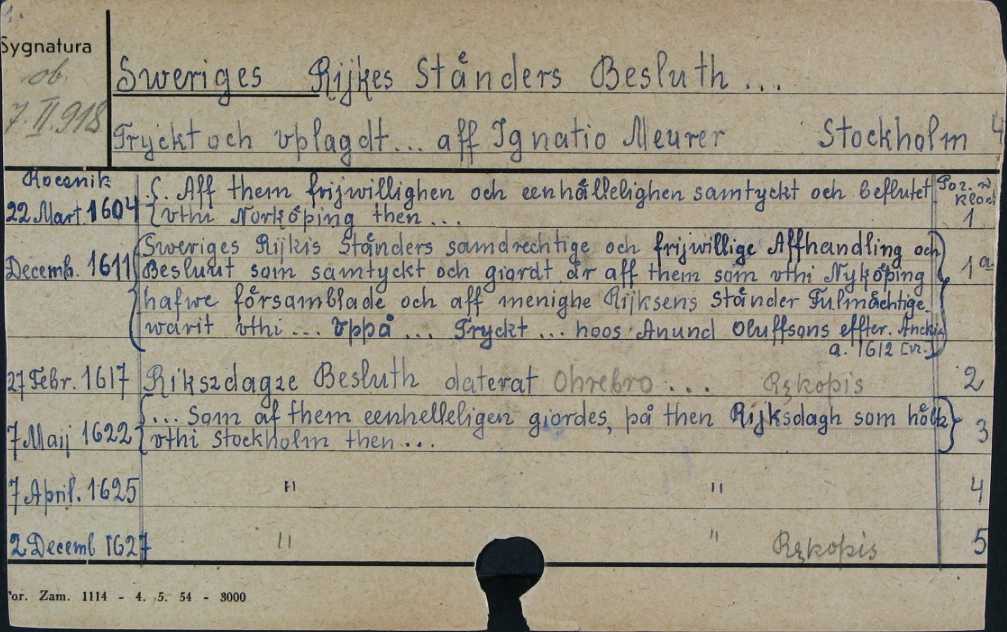 1.
Sygnatura
ob.
7.II.918
Sweriges Rijkes Ständers Besluth ...
Tryckt och vplagdt ... aff Ignatio Meurer Stockholm 4
Rocznik
Poz. w kloc.
22 Mart. 1604 S. Aff them frijwillighen och eenhällelighen samtyckt och beslutet
vthi Norköping then ... 1
Decemb. 1611 Sweriges Rijkis Ständers samdrechtige och frijwillige Affhandling och
Besluut som samtyckt och giordt är aff them som vthi Nyköping 1a
hafwe församblade och aff menighe Rijksens Ständer Fulmächtige
warit vthi ... Vppå ... Tryckt ... hoos Anund Oluffsons effter.
a. 1612
27 Febr. 1617 Rikszdagze Besluth daterat Ohrebro ... Rękopis 2
... Som af them eenhelleligen giordes, på then Rijksdagh som hölts
7 Maij 1622 vthi Stockholm then ... 3
7 April. 1625 " " 4
2 Decemb 1627 " " Rękopis 5
or. Zam. 1114 - 4. 5. 54 - 3000